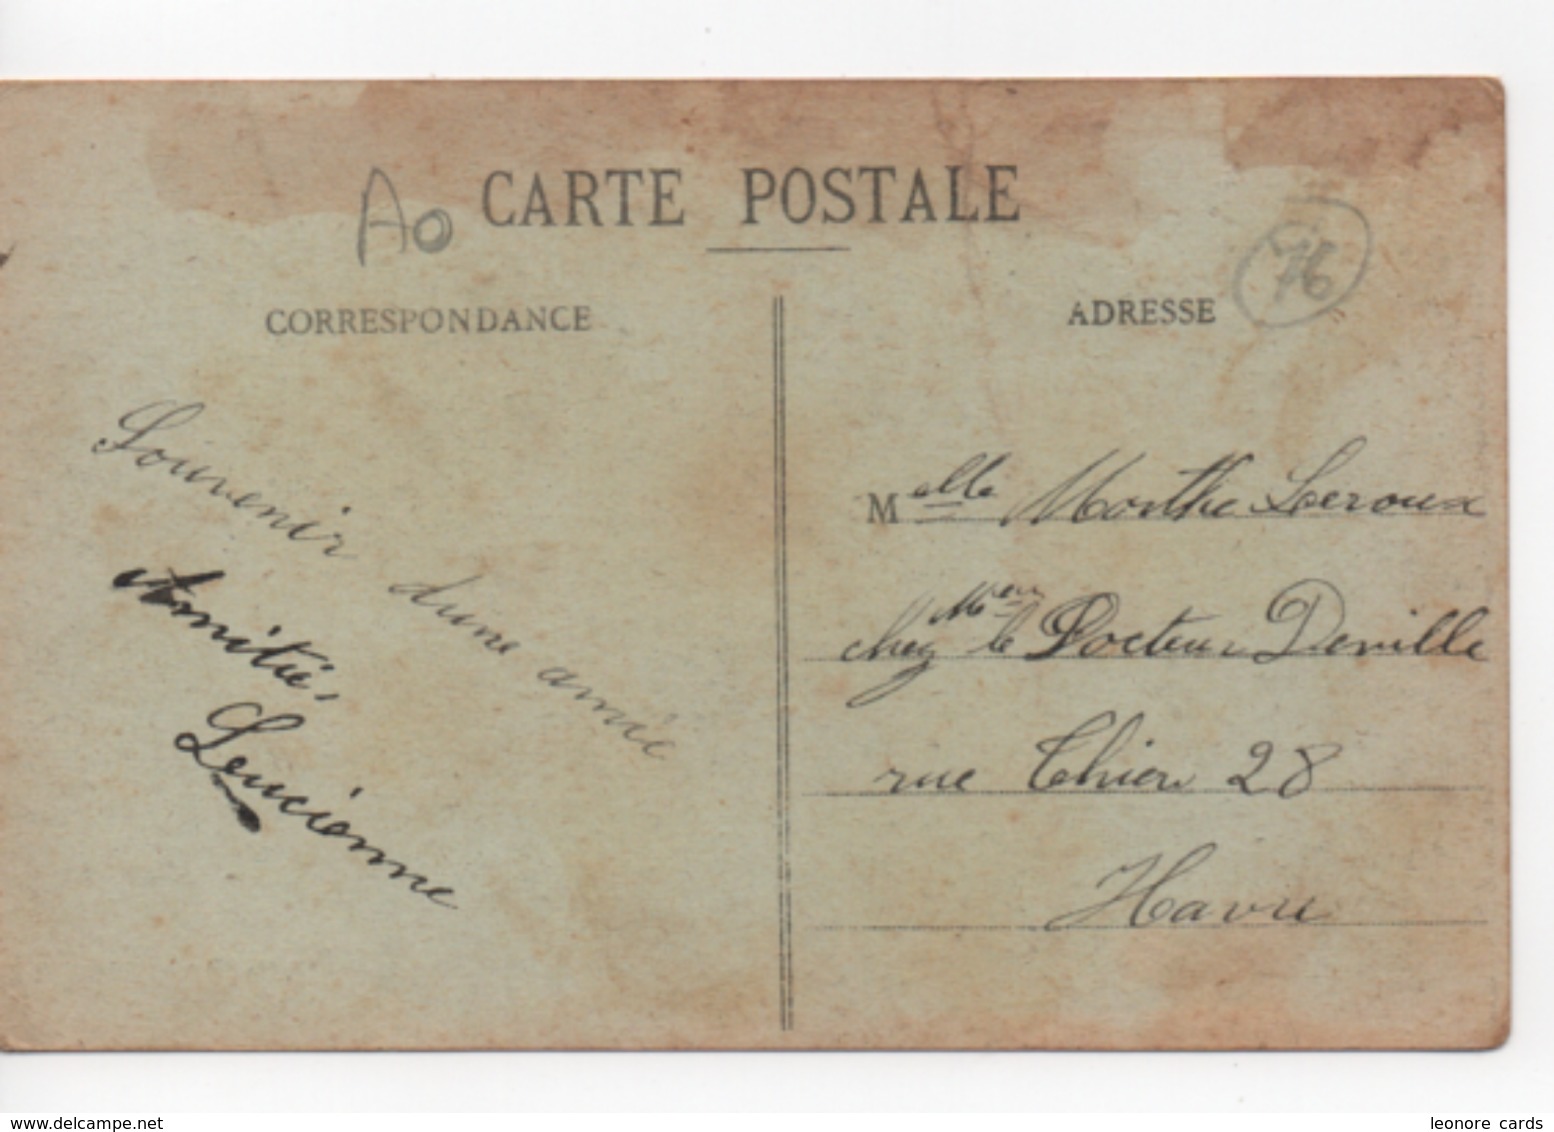 A0
CARTE POSTALE
76
CORRESPONDANCE
ADRESSE
Souvenir dune amie
Amitié,
Lucienne
Melle Marthe Leroux
chez Mr le Docteur Deville
rue Thiers 28
Havre
www.delcampe.net
leonore cards